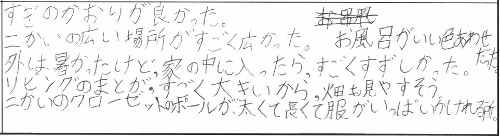 すぎのかおりが良かった。
二かいの広い場所がすごく広かった。
お風呂がいい色あわせだった
外は暑かったけど、家の中に入ったら、すごくすずしかった。
リビングのまとが、すごく大きいから、畑も見やすそう。
二かいのクローゼットのポールが、太くて長くて服がいっぱいかけれる所。